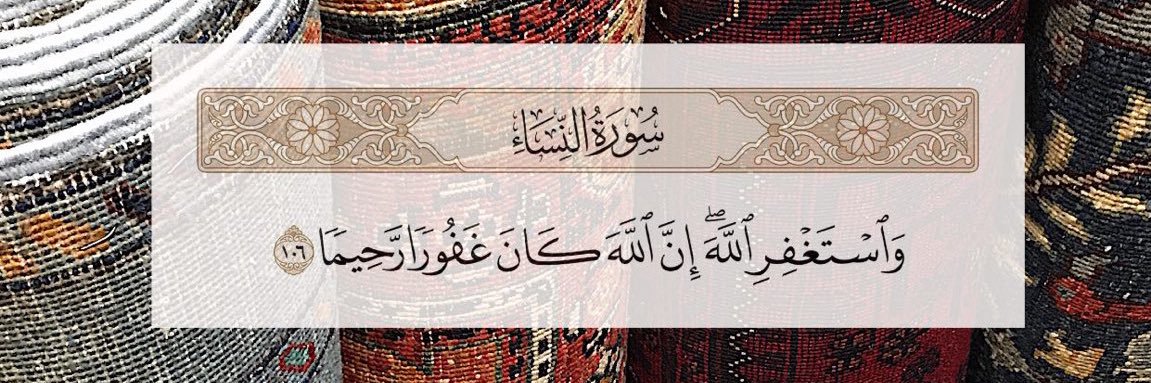 سُورَةُ النِّسَاءِ
وَٱسْتَغْفِرِ ٱللَّهَ ۖ إِنَّ ٱللَّهَ كَانَ غَفُورًا رَّحِيمًا ١٠٦